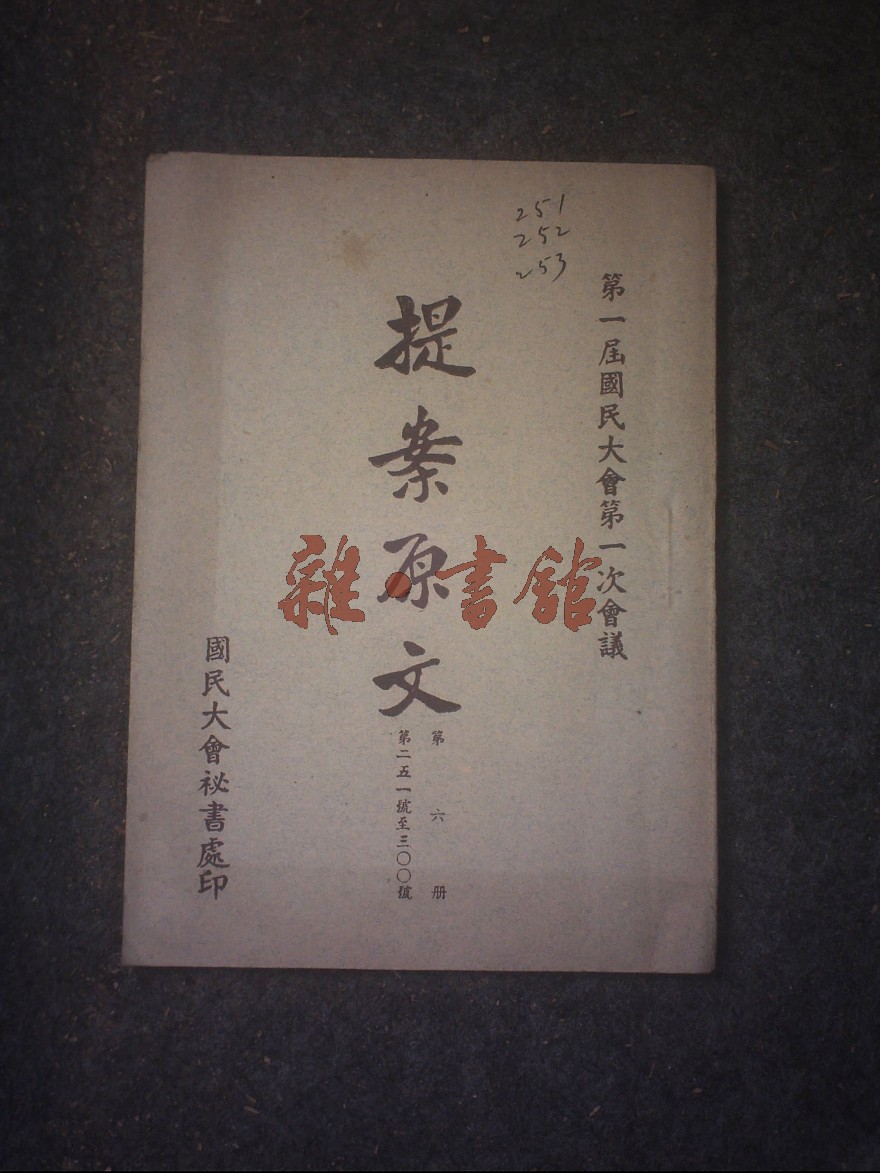 251
252
253
第一屆國民大會第一次會議
提案原文
第六册
第二五一號至三〇〇號
國民大會祕書處印
雜·書館